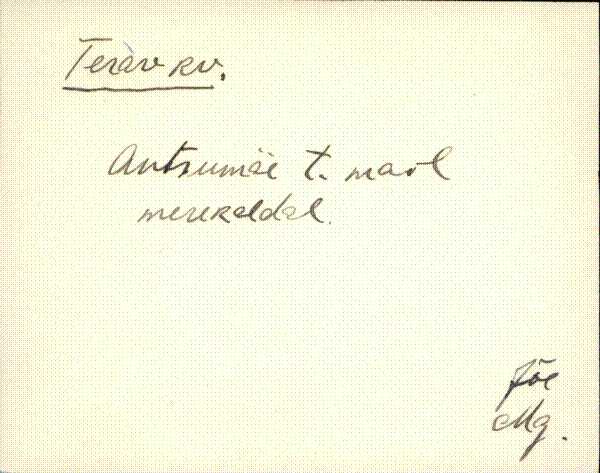 Terav kv.
Antsumäe t. maal
merekaldal.
Jõe
Mg.